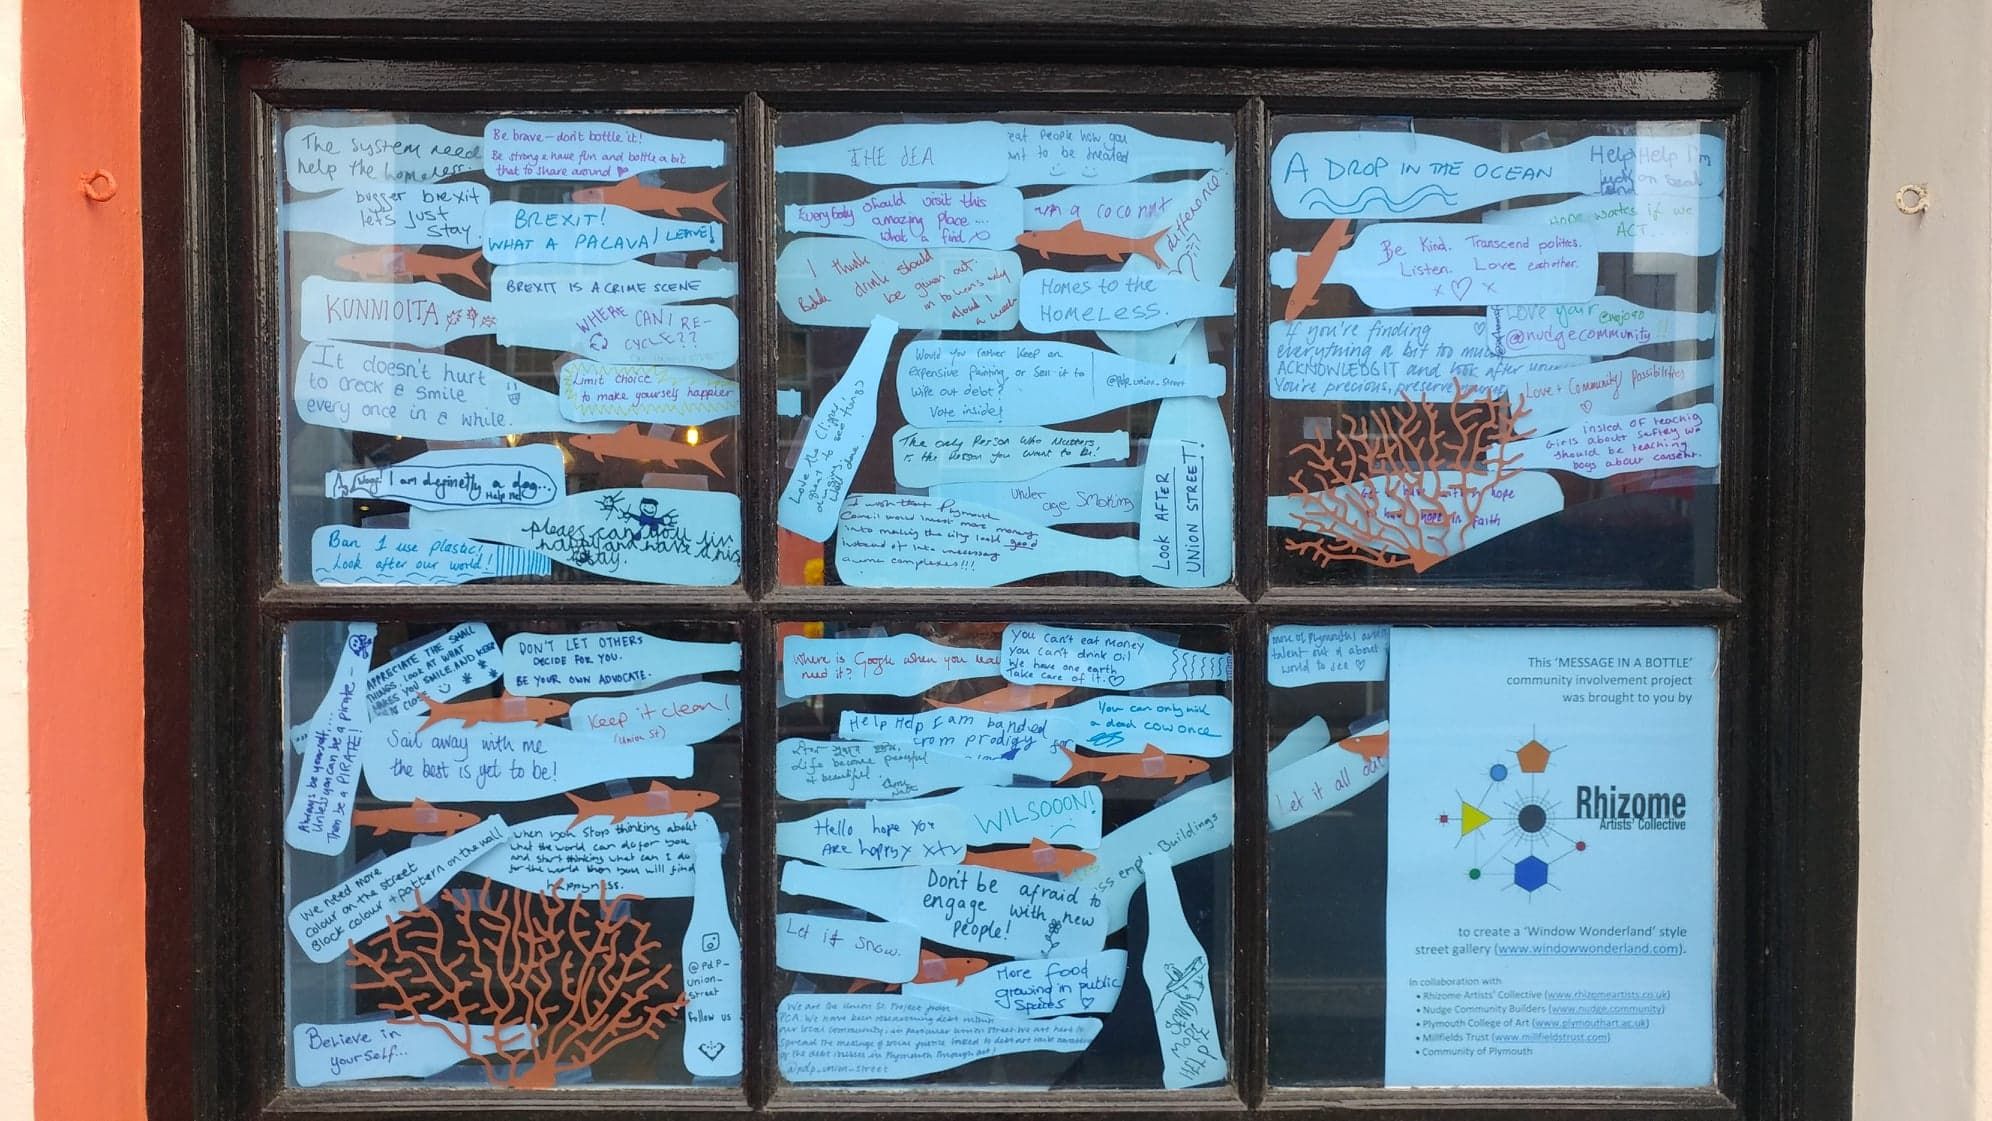 The system need
help the homeless.
Be brave - don't bottle it!
Be strong & have fun and bottle a bit
that to share around
bugger brexit
let's just
stay.
BREXIT!
WHAT A PALAVA! LEAVE!
BREXIT IS A CRIME SCENE
KUNNIOITA
WHERE CAN I RE-
CYCLE??
It doesn't hurt
to crack a smile
every once in a while.
Limit choice
to make yourself happier
I am depinetly a dog...
Help me!
Please can you
Ban 1 use plastic!
Look after our world!
THE SEA
eat people how you
nt to be treated
Everybody should visit this
amazing place ...
what a find
I'm a coconut
difference!
I think
drink should
be given out
in towns only
Homes to the
HOMELESS.
Would you rather keep an
expensive painting, or sell it to
wipe out debt?
Vote inside!
@pdp_union_street
The only person who matters,
is the person you want to be!
Under
age smoking
I wish that Plymouth
Council would invest more money
into making the city look good
instead of into unnecessary
complexes!!!
LOOK AFTER
UNION STREET!
A DROP IN THE OCEAN
Help Help I'm
works if we
ACT...
Be Kind. Transcend politics.
Listen. Love each other.
x ♡ x
Love your
@nudgecommunity!!
If you're finding
everything a bit too much
ACKNOWLEDGE IT and look after
You're precious, preserve
Love + Community possibilities
insted of teachig
Girls about saftey we
should be teaching
boys about consent.
hope
hope in faith
Always be yourself....
Unless you can be a Pirate -
Then be a PIRATE!
APPRECIATE THE SMALL
THINGS. LOOK AT WHAT
MAKES YOU SMILE, AND KEEP
IT CLOSE
DON'T LET OTHERS
DECIDE FOR YOU.
BE YOUR OWN ADVOCATE.
Keep it clean!
(Union St)
Sail away with me
the best is yet to be!
We need more
colour on the street
Block colour + pattern on the wall
When you stop thinking about
what the world can do for you
and start thinking what can I do
for the world then you will find
happyness.
@PdP_
union_
street
Follow us
Believe in
yourself...
Where is Google when you
need it?
You can't eat money
You can't drink oil
We have one earth
Take care of it. ♡
Help Help I am banded
from prodigy for
You can only milk
a dead cow once
Life become peaceful
& beautiful.
Hello hope you
Are happy x xtx
WILSOOON!
Buildings
Don't be afraid to
engage with new
people!
Let it snow.
More food
growing in public
spaces ♡
We are the Union St. Project from
PCA. We have been researching debt within
our local community, in particular Union Street. We are here to
spread the message of social justice linked to debt and raise awareness
of the debt issues in Plymouth through art!
@pdp_union_street
more of Plymouth's
talent out & about
world to see ♡
Let it all out
This 'MESSAGE IN A BOTTLE'
community involvement project
was brought to you by
Rhizome
Artists' Collective
to create a 'Window Wonderland' style
street gallery (www.windowwonderland.com).
In collaboration with
• Rhizome Artists' Collective (www.rhizomeartists.co.uk)
• Nudge Community Builders (www.nudge.community)
• Plymouth College of Art (www.plymouthart.ac.uk)
• Millfields Trust (www.millfieldstrust.com)
• Community of Plymouth